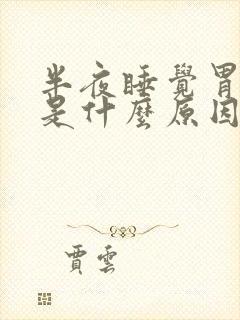 半夜睡覺胃
是什麼原因
賈雲